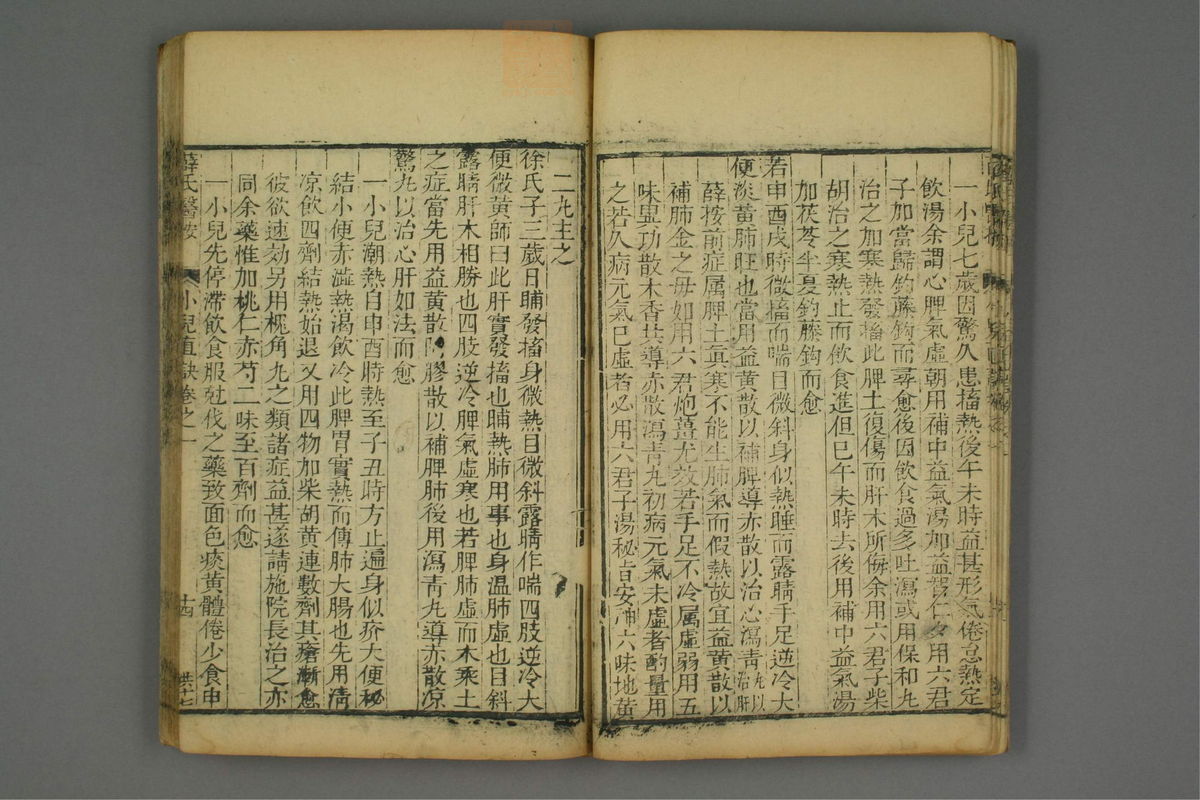 一小兒七歲因驚久患搐熱後午未時益甚形氣倦怠熱定
飲湯余謂心脾氣虛朝用補中益氣湯加益智仁夕用六君
子加當歸釣藤鉤而尋愈後因飲食過多吐瀉或用保和丸
治之加寒熱發搐此脾土復傷而肝木所侮余用六君子柴
胡治之寒熱止而飲食進但巳午未時去後用補中益氣湯
加茯苓半夏釣藤鉤而愈
若申酉戌時微搐而喘目微斜身似熱睡而露睛手足逆冷大
便淡黃肺旺也當用益黃散以補脾導赤散以治心瀉青丸以治肝
薛按前症屬脾土真寒不能生肺氣而假熱故宜益黃散以
補肺金之母如用六君炮薑尤效若手足不冷屬虛弱用五
味異功散木香共導赤散瀉青丸初病元氣未虛者酌量用
之若久病元氣已虛者必用六君子湯秘旨安神六味地黃
二丸主之
徐氏子三歲日晡發搐身微熱目微斜露睛作喘四肢逆冷大
便微黃師曰此肝實發搐也晡熱肺用事也身溫肺虛也目斜
露睛肝木相勝也四肢逆冷脾氣虛寒也若脾肺虛而木乘土
之症當先用益黃散阿膠散以補脾肺後用瀉青丸導赤散凉
驚丸以治心肝如法而愈
一小兒潮熱自申酉時熱至子丑時方止遍身似疥大便秘
結小便赤澁熱渴飲冷此脾胃實熱而傳肺大腸也先用清
凉飲四劑結熱始退又用四物加柴胡黃連數劑其瘡漸愈
彼欲速効另用槐角丸之類諸症益甚遂請施院長治之亦
同余藥惟加桃仁赤芍二味至百劑而愈
一小兒先停滯飲食服尅伐之藥致面色痰黃體倦少食申
薛氏醫按 小兒直訣卷之一 十四